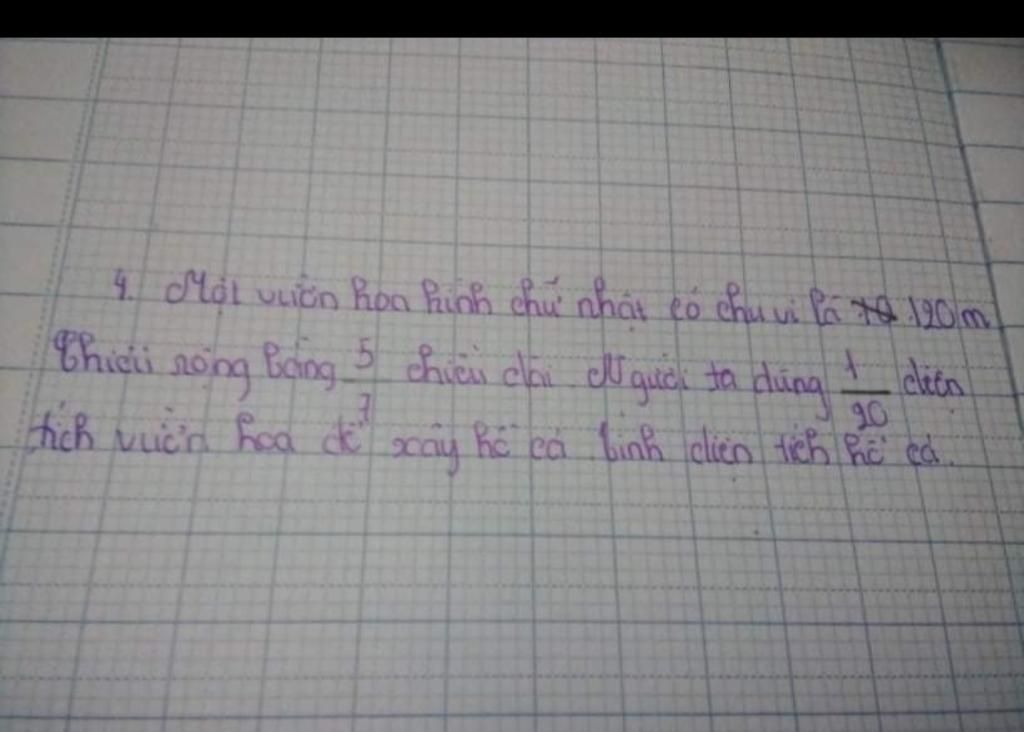 4. Một vườn hoa hình chữ nhật có chu vi là 120 m
Chiều rộng bằng 5/7 chiều dài Người ta dùng 1/20 diện
tích vườn hoa để xây hồ cá tính diện tích hồ cá.